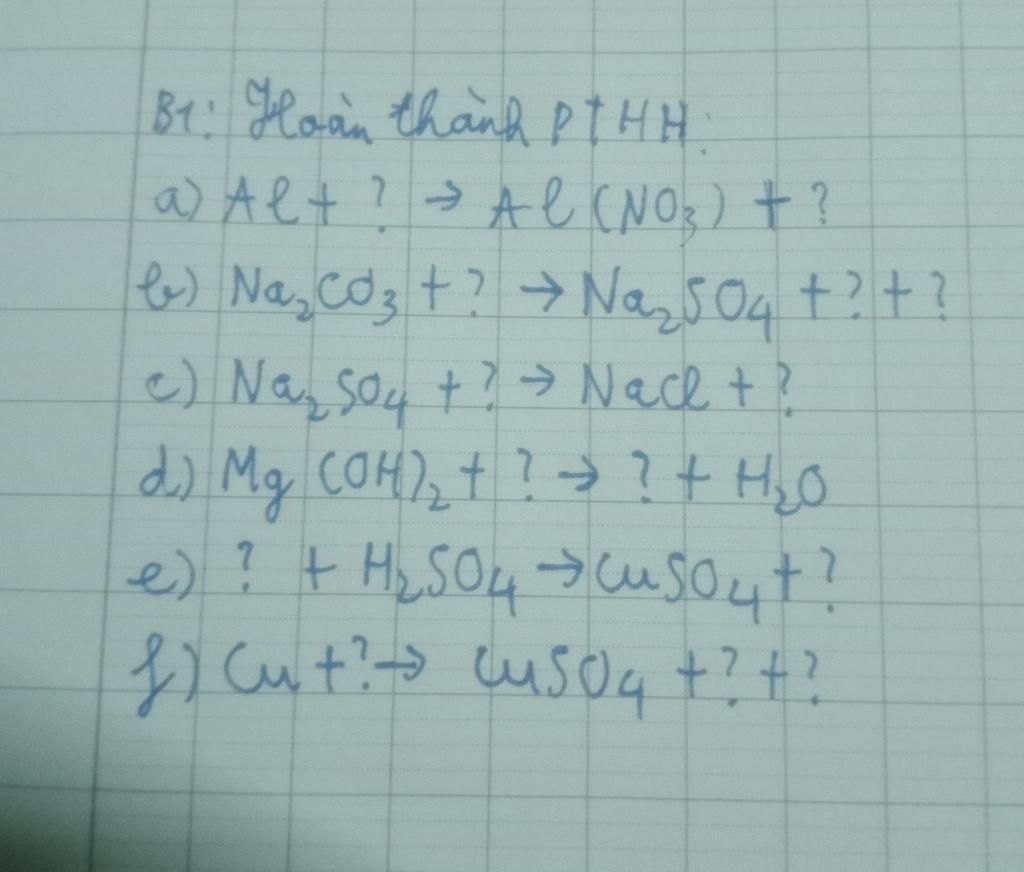 B1: Hoàn thành PTHH:
a) Al + ? → Al(NO₃) + ?
b) Na₂CO₃ + ? → Na₂SO₄ + ? + ?
c) Na₂SO₄ + ? → NaCl + ?
d) Mg(OH)₂ + ? → ? + H₂O
e) ? + H₂SO₄ → CuSO₄ + ?
f) Cu + ? → CuSO₄ + ? + ?